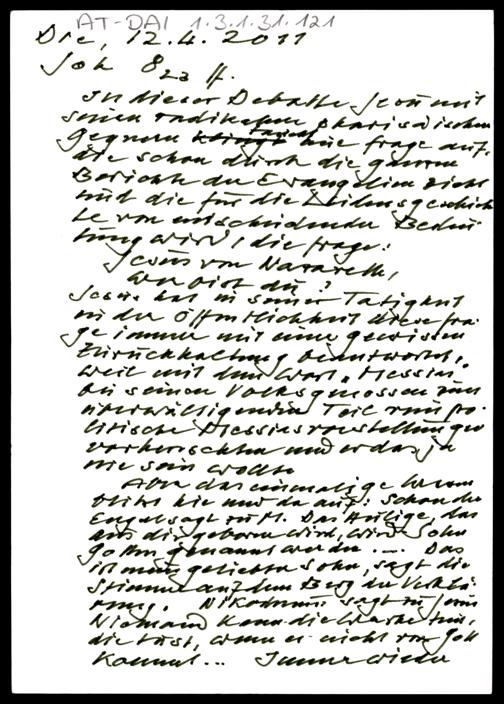 AT-DAI 1.3.1.31.121
Die, 12.4.2011
Joh 8 23 ff.
In dieser Debatte Jesu mit
seinen radikalen pharisäischen
Gegnern taucht eine Frage auf,
die schon durch die ganzen
Berichte der Evangelien zieht
und die für die Leidensgeschich
te von entscheidender Bedeu
tung wird, die Frage:
Jesus von Nazareth,
wer bist du?
Jesus hat in seiner Tätigkeit
in der Öffentlichkeit diese Fra-
ge immer mit einer gewissen
Zurückhaltung beantwortet,
weil mit dem Wort "Messias"
bei seinen Volksgenossen zum
überwältigenden Teil rein po-
litische Messiasvorstellungen
vorherrschten und er das ja
nie sein wollte
Aber das einmalige
blitzt hie und da auf: schon der
Engel sagt zu M. Das Heilige, das
aus dir geboren wird, wird Sohn
Gottes genannt werden .... Das
ist mein geliebter Sohn, sagt die
Stimme auf dem Berg der Verklä-
rung. Nikodemus sagt zu Jesus
Niemand kann die Werke tun,
die du tust, wenn er nicht von Gott
kommt... Immer wieder